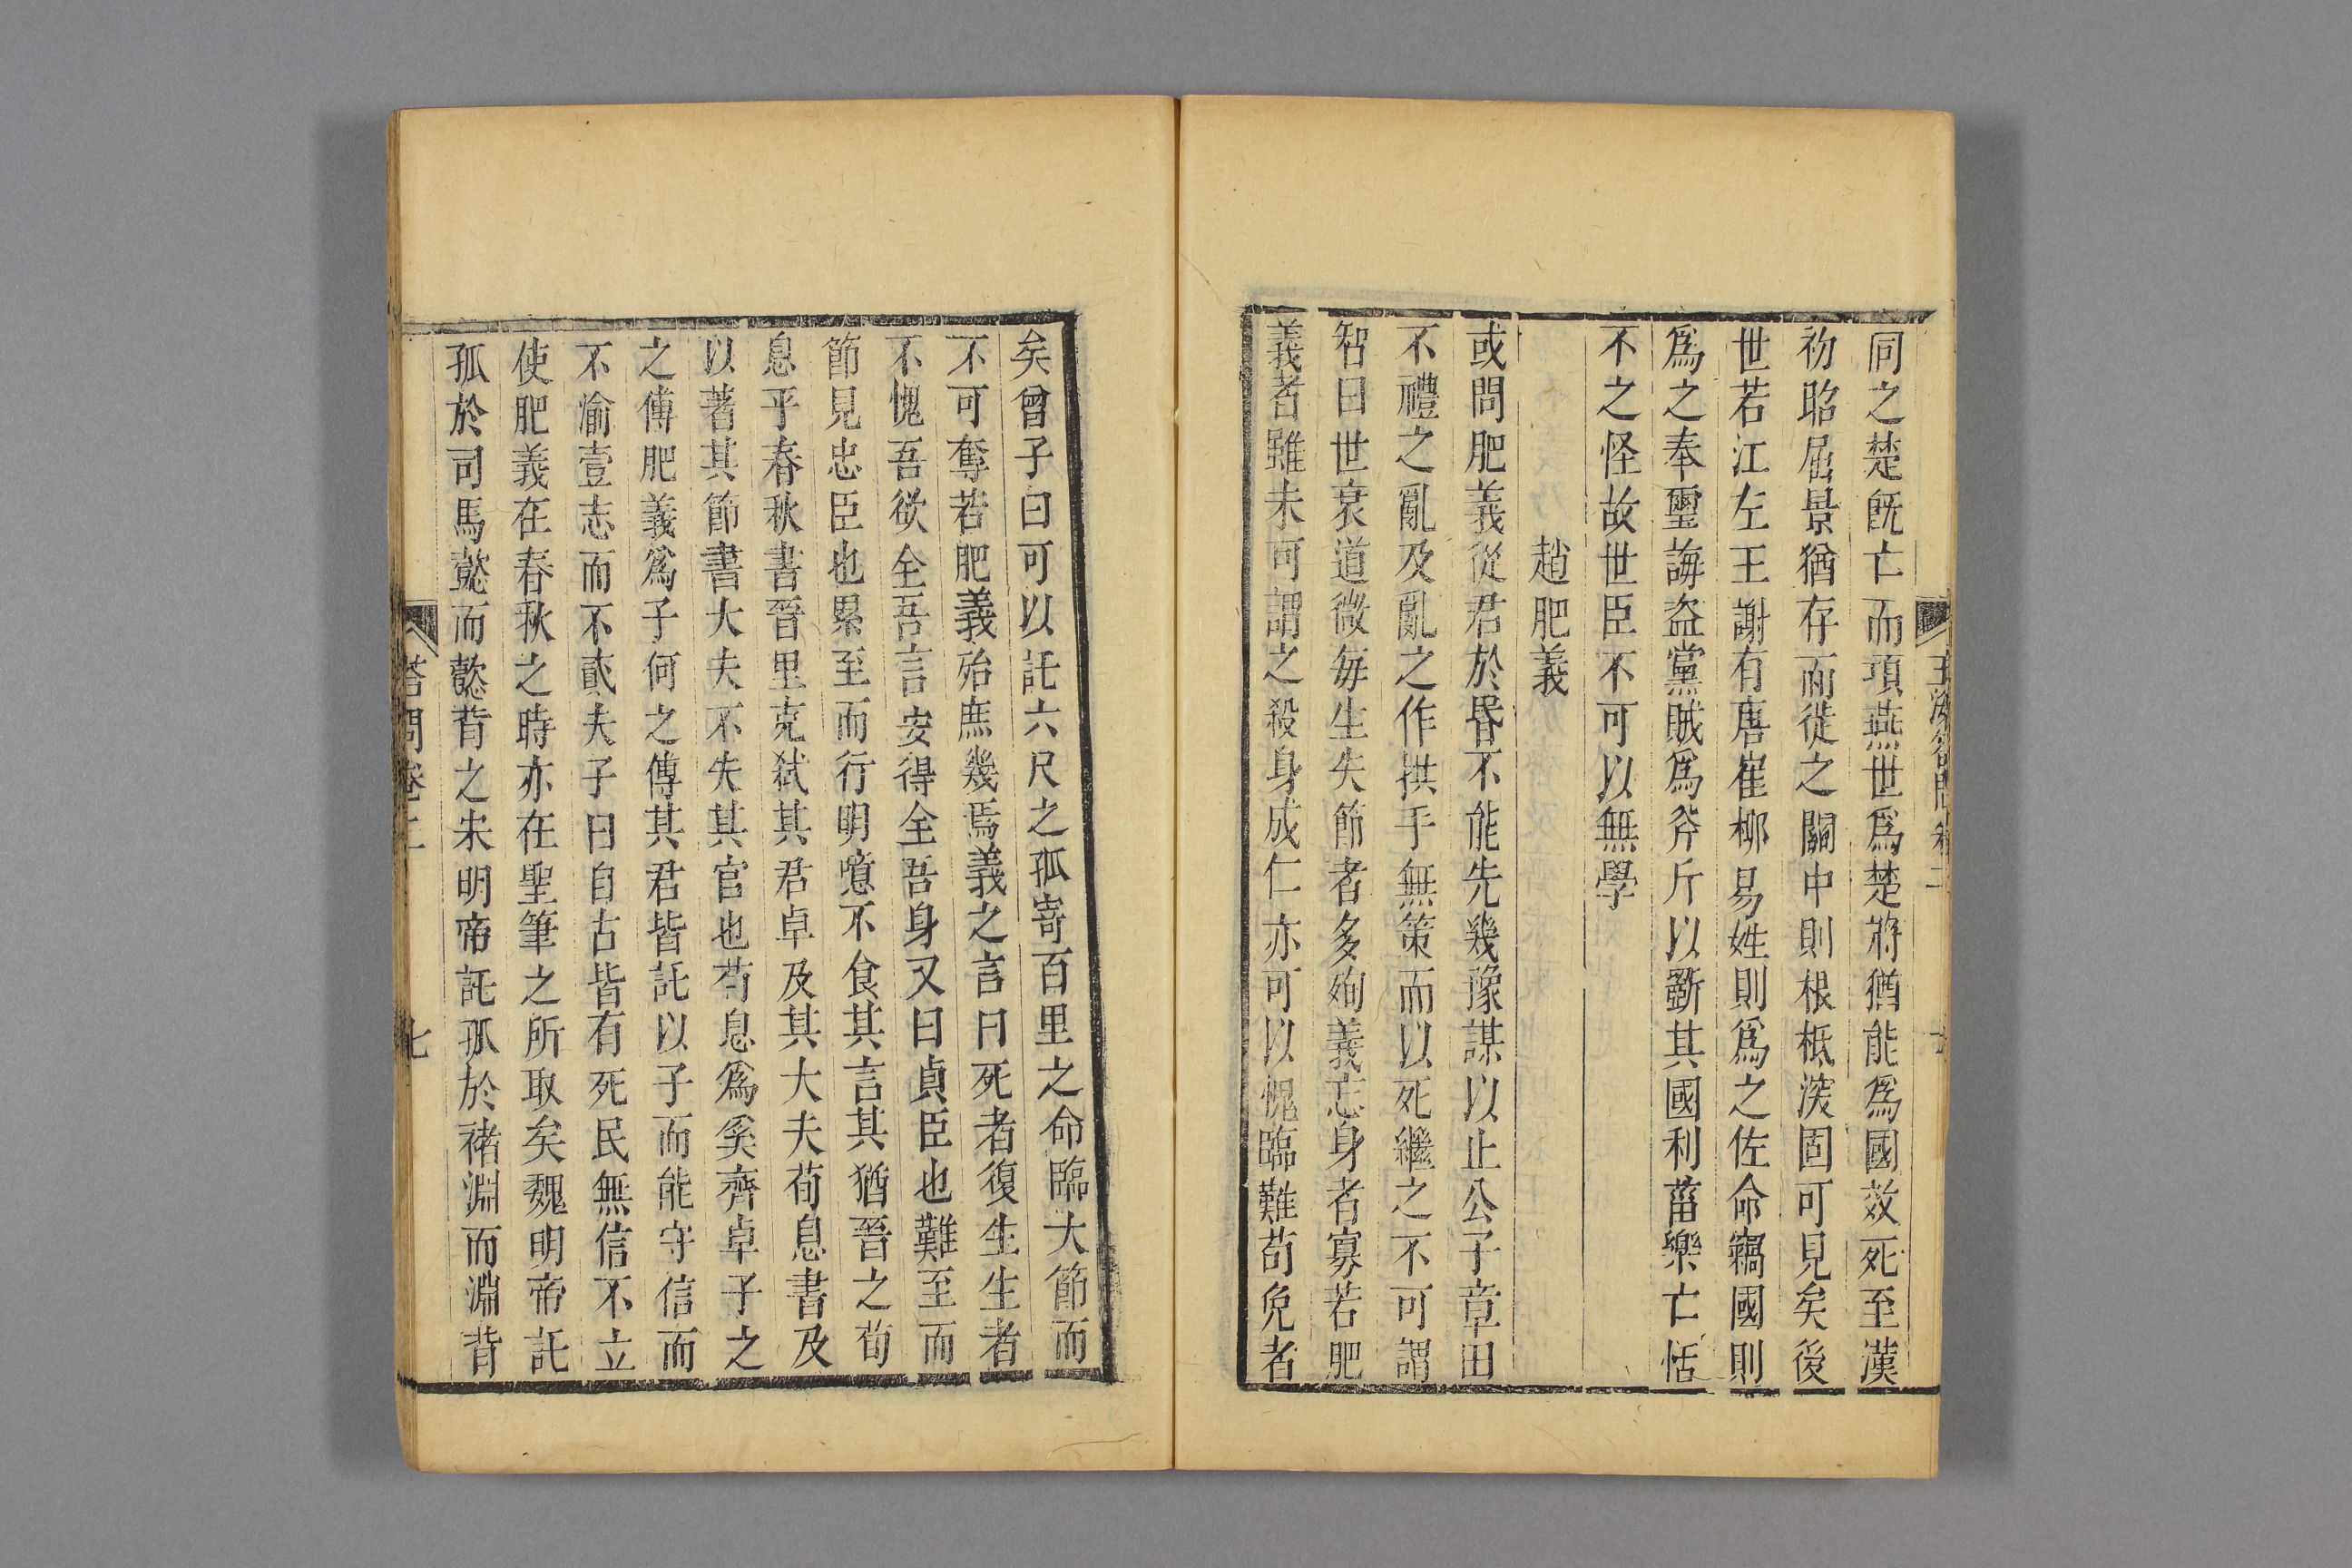 同之楚旣亡而項燕世爲楚將猶能爲國效死至漢
初昭屈景猶存而徙之關中則根柢深固可見矣後
世若江左王謝有唐崔柳易姓則爲之佐命竊國則
爲之奉璽誨盜黨賊爲斧斤以斲其國利菑樂亡恬
不之怪故世臣不可以無學
趙肥義
或問肥義從君於昬不能先幾豫謀以止公子章田
不禮之亂及亂之作拱手無策而以死繼之不可謂
智曰世衰道微每生失節者多殉義忘身者寡若肥
義者雖未可謂之殺身成仁亦可以愧臨難苟免者
矣曾子曰可以託六尺之孤寄百里之命臨大節而
不可奪若肥義殆庶幾焉義之言曰死者復生生者
不愧吾欲全吾言安得全吾身又曰貞臣也難至而
節見忠臣也累至而行明噫不食其言其猶晉之荀
息乎春秋書晉里克弑其君卓及其大夫荀息書及
以著其節書大夫不失其官也荀息爲奚齊卓子之
之傅肥義爲子何之傅其君皆託以子而能守信而
不渝壹志而不貳夫子曰自古皆有死民無信不立
使肥義在春秋之時亦在聖筆之所取矣魏明帝託
孤於司馬懿而懿背之宋明帝託孤於褚淵而淵背
荅問卷二
七